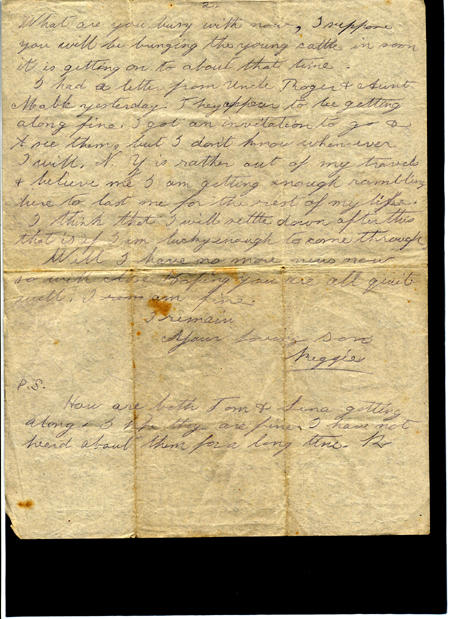 2.
What are you busy with now, I suppose
you will be bringing the young cattle in soon
it is getting on to about that time.
I had a letter from Uncle Roger & Aunt
Mable yesterday. They appear to be getting
along fine. I got an invitation to go &
see them, but I don't know when ever
I will. N.Y. is rather out of my travels
& believe me I am getting enough rambling
here to last me for the rest of my life.
I think that I will settle down after this
that is if I'm lucky enough to come through
Well I have no more news now
so will close hoping you are all quit
well. I am fine.
I remain
Your loving son
Reggie
P.S.
How are both Tom & Lena getting
along. I hope they are fine. I have not
heard about them for a long time. R